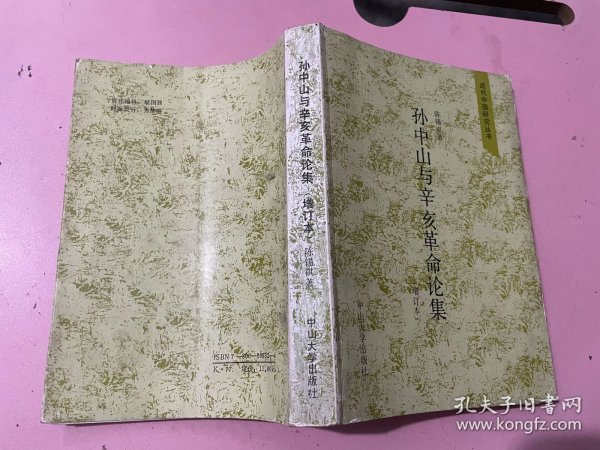 近代中国研究丛书
陈锡祺著
孙中山与辛亥革命论集
（增订本）
中山大学出版社
孙中山与辛亥革命论集（增订本）
陈锡祺著
中山大学出版社
责任编辑
封面设计
ISBN 7
定价
孔夫子旧书网
www.kongfz.com